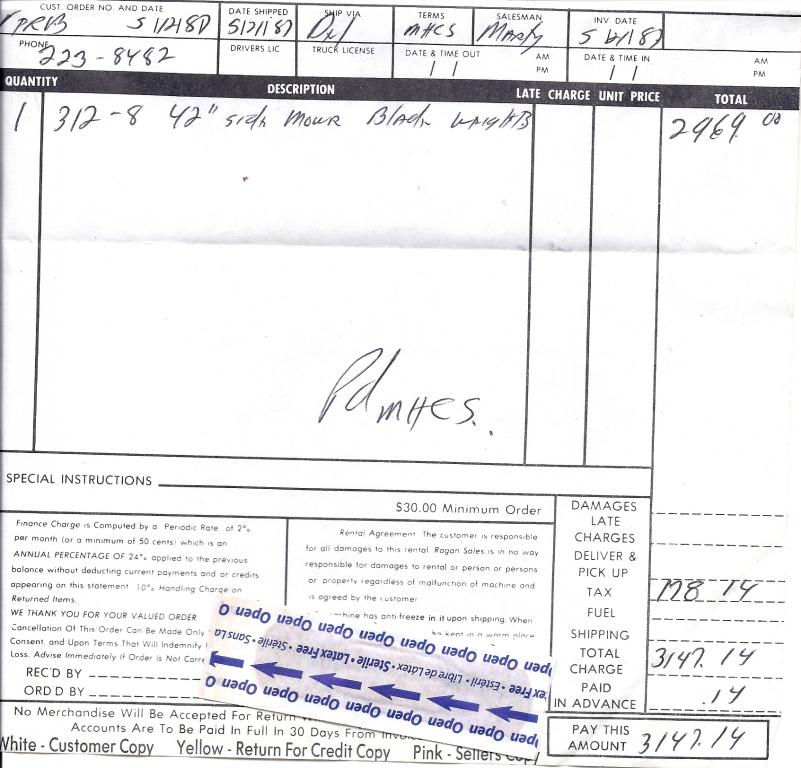 CUST. ORDER NO. AND DATE DATE SHIPPED SHIP VIA TERMS SALESMAN INV DATE
5/21/87 MHCS Marty
PHONE 223-8482 DRIVERS LIC TRUCK LICENSE DATE & TIME OUT AM PM DATE & TIME IN AM PM
QUANTITY DESCRIPTION LATE CHARGE UNIT PRICE TOTAL
1 312-8 42" Mower 2969.00
Pd MHCS.
SPECIAL INSTRUCTIONS
$30.00 Minimum Order
Finance Charge is Computed by a Periodic Rate of 2%
per month (or a minimum of 50 cents) which is an
ANNUAL PERCENTAGE OF 24% applied to the previous
balance without deducting current payments and or credits
appearing on this statement 10% Handling Charge on
Returned Items.
WE THANK YOU FOR YOUR VALUED ORDER
Cancellation Of This Order Can Be Made Only
Consent, and Upon Terms That Will Indemnify
Loss. Advise Immediately If Order Is Not
REC'D BY
ORD'D BY
Rental Agreement The customer is responsible
for all damages to this rental Ragan Sales is in no way
responsible for damages to rental or person or persons
or property regardless of malfunction of machine and
is agreed by the customer
has anti freeze in it upon shipping. When
kept in a warm place
DAMAGES
LATE CHARGES
DELIVER & PICK UP
TAX 178 14
FUEL
SHIPPING
TOTAL CHARGE 3147.14
PAID IN ADVANCE .14
PAY THIS AMOUNT 3147.14
Open Open Open Open Open Open Open Open
Free • Stérile • Latex Free • Sterile • Sans
Free • Estéril • Libre de Látex • Sterile
Open Open Open Open Open Open Open Open
No Merchandise Will Be Accepted For Return
Accounts Are To Be Paid In Full In 30 Days From
White - Customer Copy Yellow - Return For Credit Copy Pink - Sellers Copy